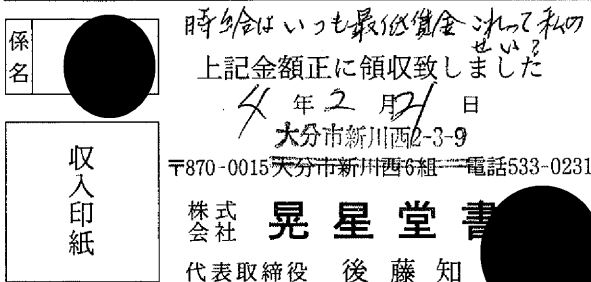 時給はいつも最低賃金 これって私の
せい?
係名
上記金額正に領収致しました
4年2月21日
大分市新川西2-3-9
〒870-0015 大分市新川西6組 電話533-0231
収入印紙
株式会社 晃星堂書
代表取締役 後藤知